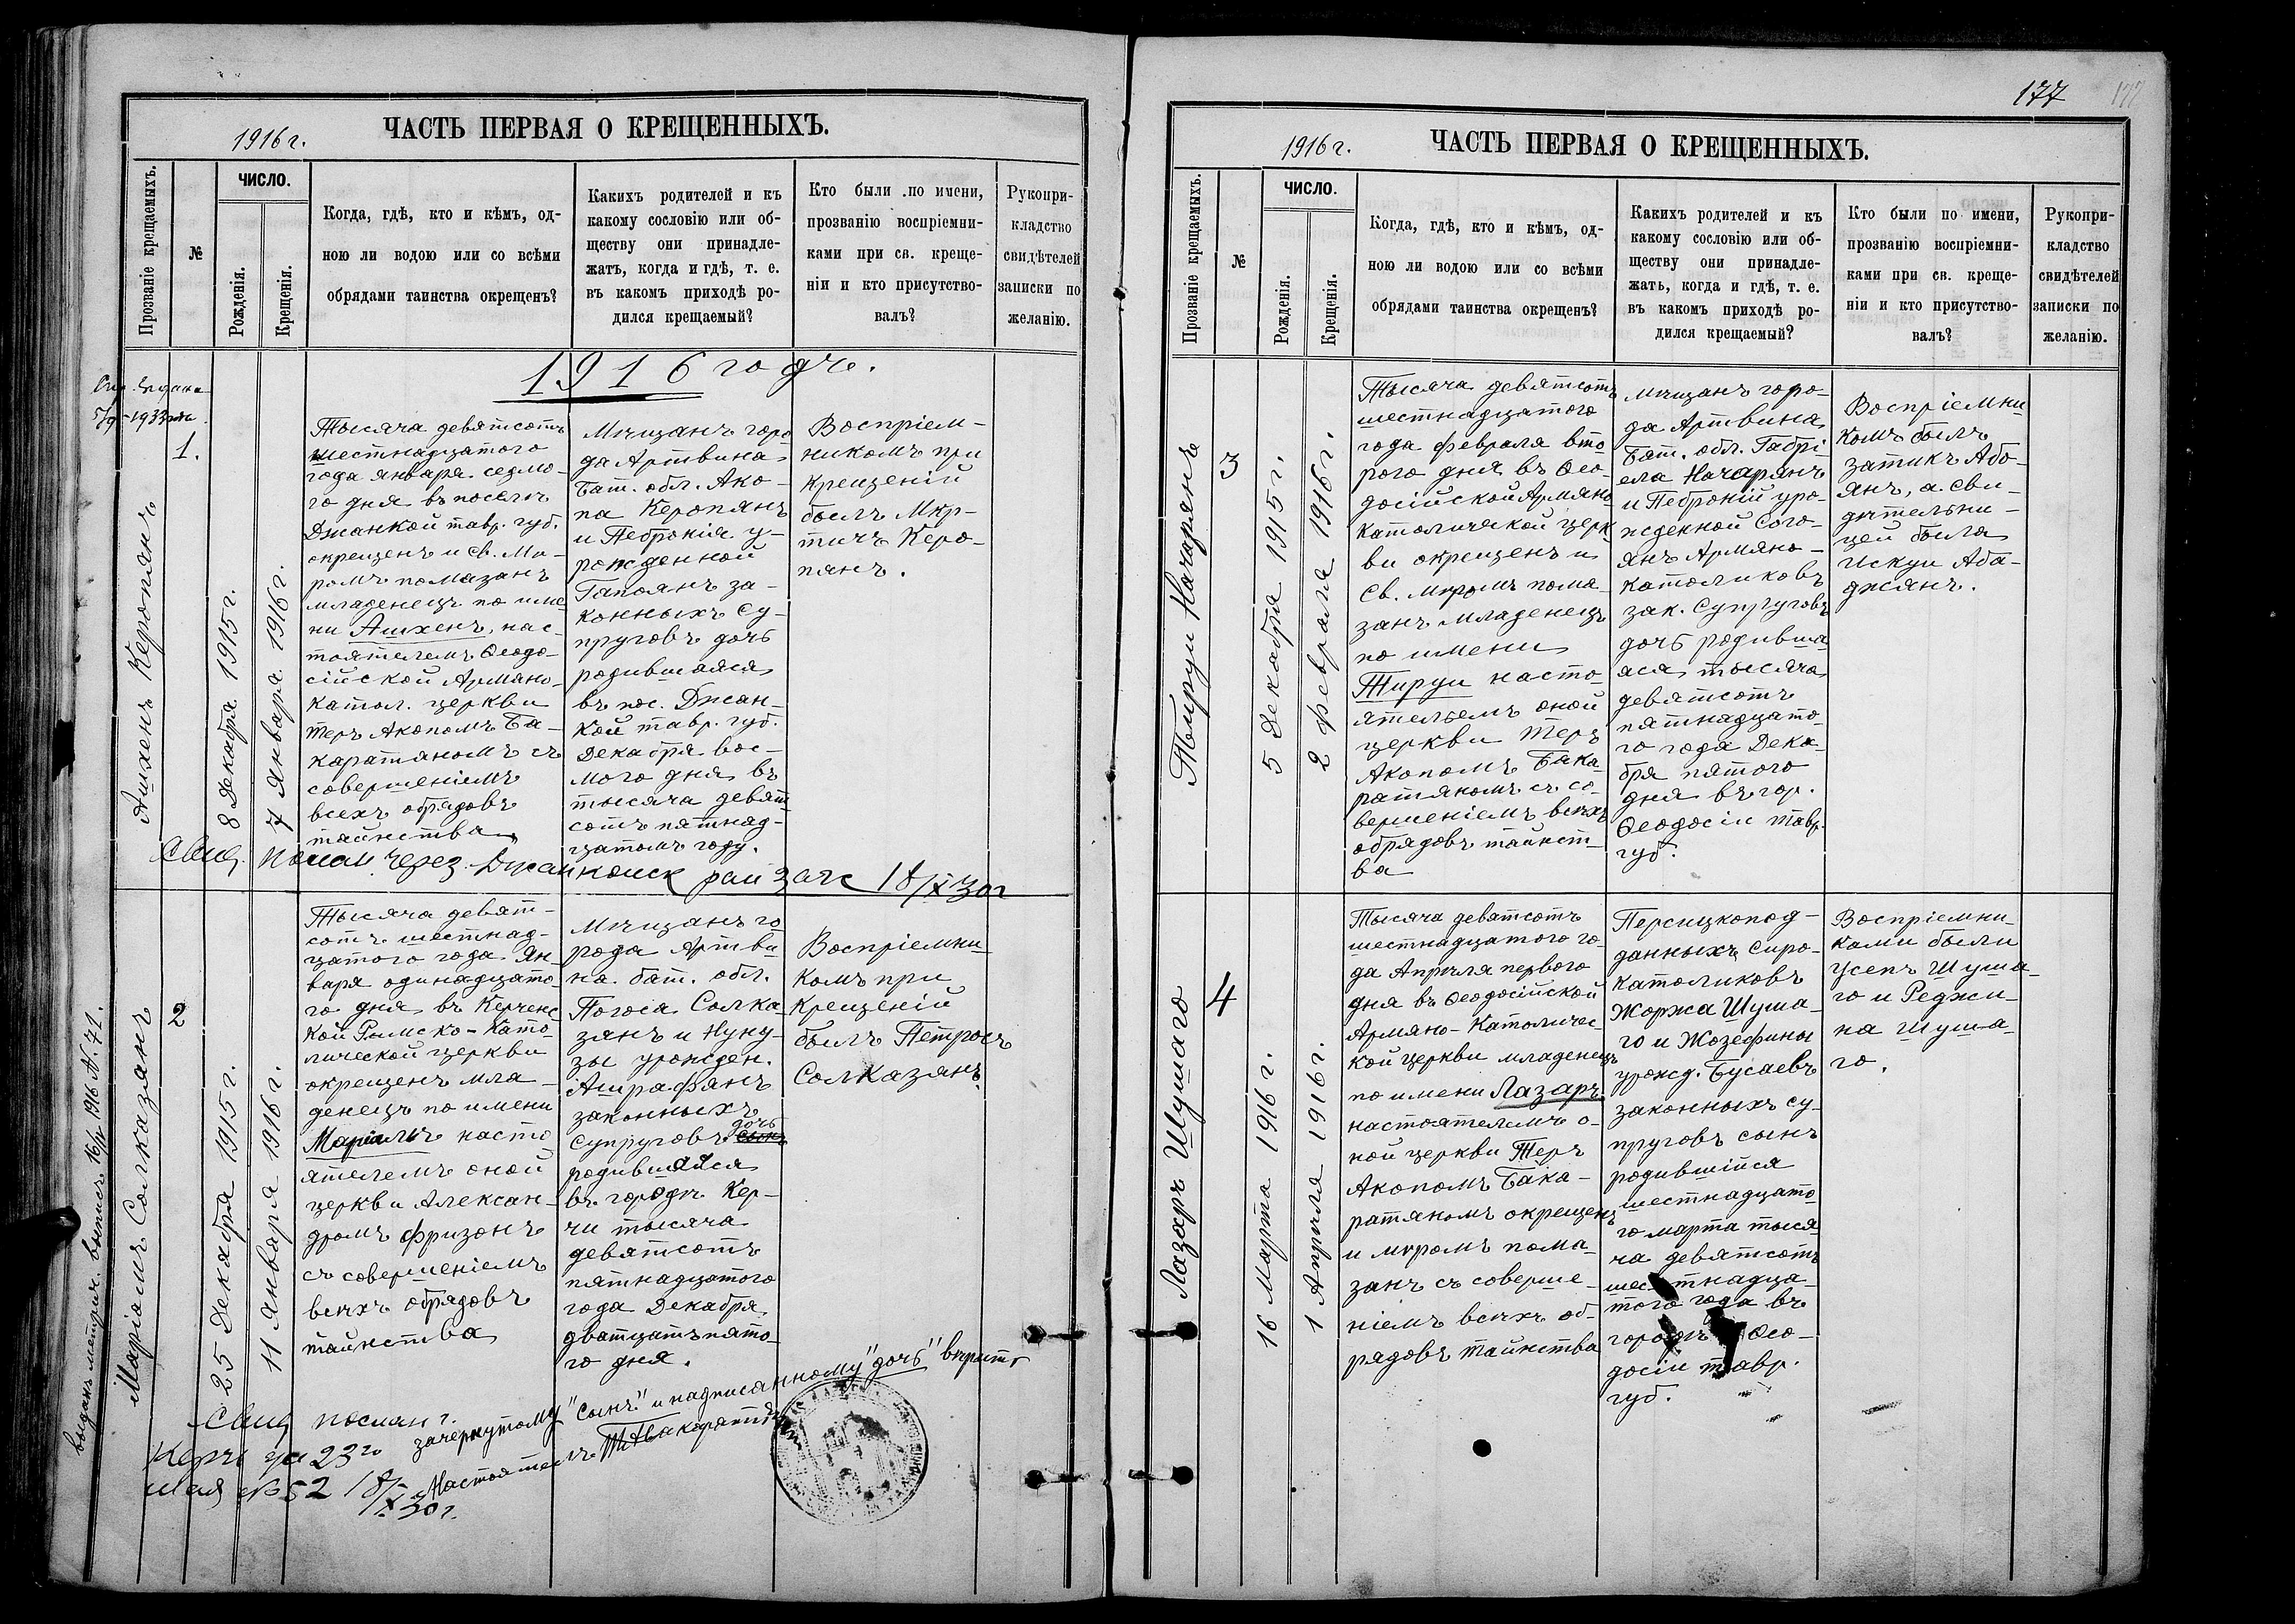 1916 г.
ЧАСТЬ ПЕРВАЯ О КРЕЩЕННЫХЪ.
Прозваніе крещаемыхъ.
№
ЧИСЛО.
Рожденія.
Крещенія.
Когда, гдѣ, кто и кѣмъ, од-
ною ли водою или со всѣми
обрядами таинства окрещенъ?
Какихъ родителей и къ
какому сословію или об-
ществу они принадле-
жатъ, когда и гдѣ, т. е.
въ какомъ приходѣ ро-
дился крещаемый?
Кто были по имени,
прозванію воспріемни-
ками при св. креще-
ніи и кто присутство-
валъ?
Рукопри-
кладство
свидѣтелей
записки по
желанію.
1916 годъ.
5/9-1933
Ашхенъ Керопянъ
1.
8 Декабря 1915 г.
7 Января 1916 г.
Тысяча девятсотъ
шестнадцатого
года января седмо-
го дня въ поселкѣ
Джанкой тавр. губ.
окрещенъ и св. Ми-
ромъ помазанъ
младенецъ по име
ни Ашхенъ, нас-
тоятелемъ Ѳеодо-
сійской Армяно-
катол. церкви
теръ Акопомъ Ба-
каратяномъ съ
совершеніемъ
всехъ обрядовъ
таинства
Мѣщанъ горо
да Артвина
Бат. обл. Ако-
па Керопянъ
и Пебронія у-
рожденной
Гапоянъ за-
конныхъ су-
пруговъ дочь
родившаяся
въ пос. Джан-
кой тавр. губ.
Декабря вос-
мого дня въ
тысяча девят
сотъ пятнад-
цатомъ году.
Воспріем-
никомъ при
крещеній
былъ Мкр-
тичъ Керо-
пянъ.
Свид. послан. через Джанкойск рай загс 18/X 30 г
выданъ метрич. выпись 16/IV 1916 N. 71.
Маріамъ Солказянъ
2
25 Декабря 1915 г.
11 Января 1916 г.
Тысяча девят-
сотъ шестнад-
цатого года Ян-
варя одинадцато
го дня въ Керченс
кой Римско-Като
лической церкви
окрещенъ мла-
денецъ по имени
Маріамъ насто
ятелемъ оной
церкви Алексан-
дромъ Фризонъ
съ совершеніемъ
всѣхъ обрядовъ
таинства
Мѣщанъ го
рода Артви
на. бат. обл.
Погоса Солка
зянъ и Нуну-
зы урожден.
Ашрафянъ
законныхъ
дочь
супруговъ сынъ
родившаяся
въ городѣ Кер-
чи тысяча
девятсотъ
пятнадцатого
года Декабря
дватцать пято
го дня.
Воспріемни
комъ при
крещеній
былъ Петросъ
Солказянъ.
Свид послан г.
Керчь на 23го
мая № 52 18/X 30 г.
зачеркнутому "сынъ" и надписанному "дочь" вѣрить
Настоятель
177
177
1916 г.
ЧАСТЬ ПЕРВАЯ О КРЕЩЕННЫХЪ.
Прозваніе крещаемыхъ.
№
ЧИСЛО.
Рожденія.
Крещенія.
Когда, гдѣ, кто и кѣмъ, од-
ною ли водою или со всѣми
обрядами таинства окрещенъ?
Какихъ родителей и къ
какому сословію или об-
ществу они принадле-
жатъ, когда и гдѣ, т. е.
въ какомъ приходѣ ро-
дился крещаемый?
Кто были по имени,
прозванію воспріемни-
ками при св. креще-
ніи и кто присутство-
валъ?
Рукопри-
кладство
свидѣтелей
записки по
желанію.
Тируи Начарянъ
3
5 Декабря 1915 г.
2 Февраля 1916 г.
Тысяча девятсотъ
шестнадцатого
года февраля вто
рого дня въ Ѳео-
досійской Армяно
католической церк
ви окрещенъ и
Св. мѵромъ пома
занъ младенецъ
по имени
Тируи насто-
ятелемъ оной
церкви Теръ
Акопомъ Бака
ратяномъ съ со-
вершеніемъ всѣхъ
обрядовъ таинст-
ва
мѣщанъ горо-
да Артвина
Бат. обл. Габрі
ела Начарянъ
и Пеброній уро-
жденной Сого-
янъ Армяно-
католиковъ
зак. Супруговъ
дочь родивша
аяся тысяча
девятсотъ
пятнадцато-
го года Дека-
бря пятого
дня въ гор.
Ѳеодосіи тавр.
губ.
Воспріемни
комъ былъ
затикъ Або-
янъ, а. сви-
дѣтельни-
цей была
Искуи Аба-
джянъ.
Лазаръ Шушаго
4
16 Марта 1916 г.
1 Апрѣля 1916 г.
Тысяча девятсотъ
шестнадцатого го-
да Апрѣля первого
дня въ Ѳеодосійской
Армяно-Католичес-
кой церкви младенецъ
по имени Лазаръ
настоятелемъ о-
ной церкви Теръ
Акопомъ Бака-
ратяномъ окрещенъ
и мѵромъ пома-
занъ съ соверше-
ніемъ всѣхъ об-
рядовъ таинства
Персицкопод-
данныхъ Сиро-
католиковъ
Жоржа Шуша-
го и Жозефины
урожд. Бусаевъ
законныхъ су-
пруговъ сынъ
родившійся
шестнадцато
го марта тыся
ча девятсотъ
шестнадца-
того года въ
городѣ Ѳео-
досіи тавр.
губ.
Воспріемни-
ками были
Усепъ Шуша-
го и Реджи-
на Шуша-
го.